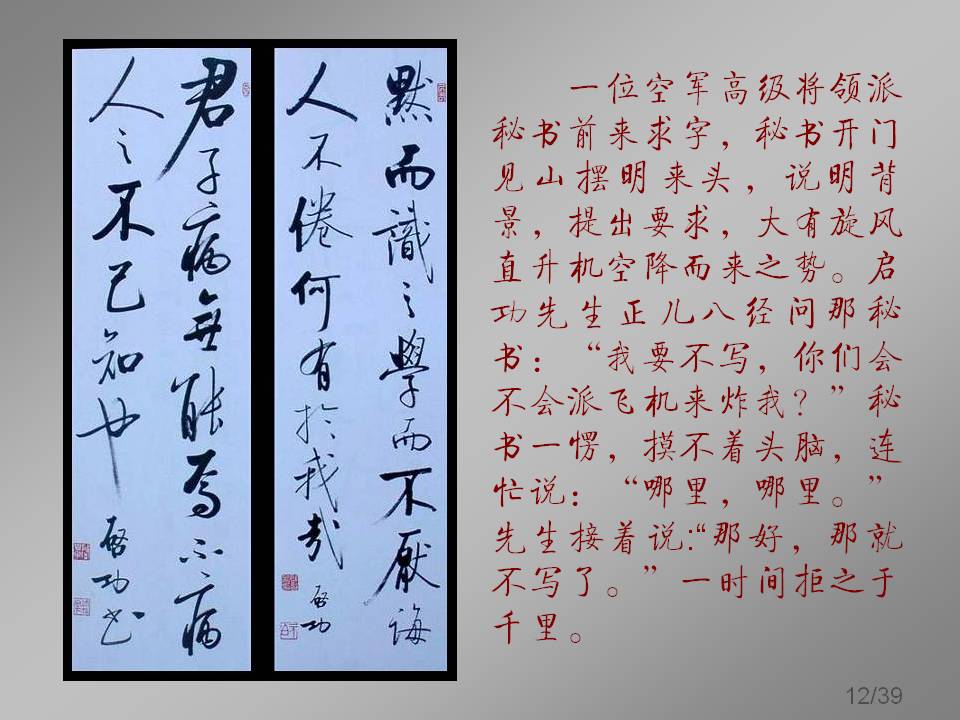 默而識之學而不厭誨
人不倦何有於我哉
啟功
君子病無能焉不病
人之不己知也
啟功書
一位空军高级将领派
秘书前来求字，秘书开门
见山摆明来头，说明背
景，提出要求，大有旋风
直升机空降而来之势。启
功先生正儿八经问那秘
书：“我要不写，你们会
不会派飞机来炸我？”秘
书一愣，摸不着头脑，连
忙说：“哪里，哪里。”
先生接着说:“那好，那就
不写了。”一时间拒之于
千里。
12/39